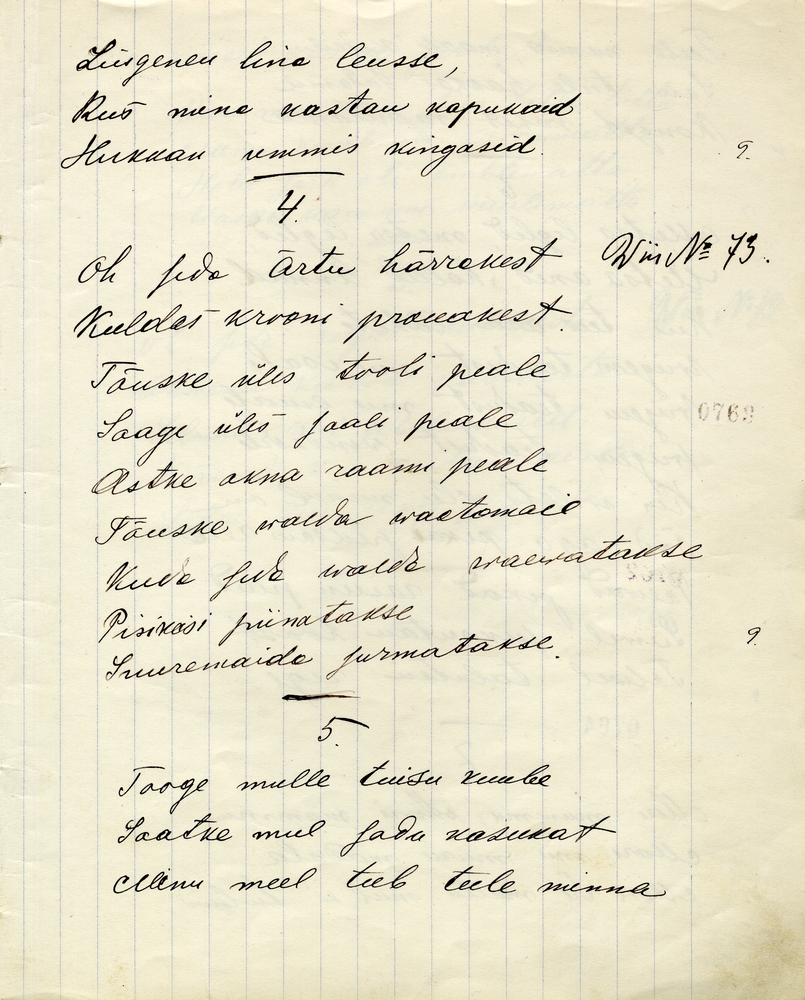 Lingenen lina leusse,
Kus mina kastan kapukaid
Hukkan ummis kingasid.
9.
4.
Oh seda Ärtu härrakest Wiis № 73.
Kuldas krooni prouakest.
Tõuske üles tooli peale
Saage üles saali peale
0769
Astke akna raami peale
Tõuske walda waatamaie
Kuda seda walda waewatakse
Pisikesi piinatakse
9.
Suuremaida surmatakse.
5.
Tooge mulle tuisu kuube
Saatke mul sadu kasukat
Minu meel teeb teele minna